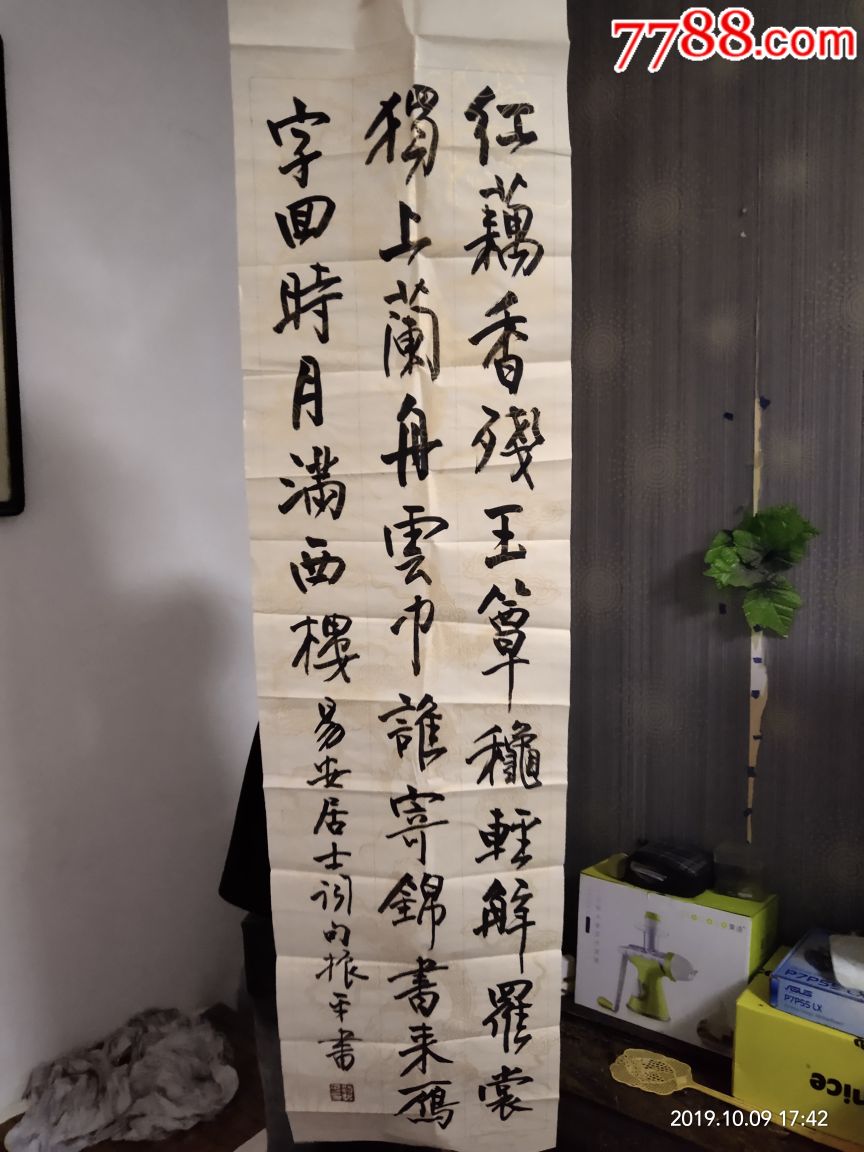 7788.com
紅藕香殘玉簟穐輕解羅裳
獨上蘭舟雲中誰寄錦書来鴈
字回時月滿西樓易安居士詞句振平書
P7P55 L
ASUS
P7P55 LX
nice
2019.10.09 17:42